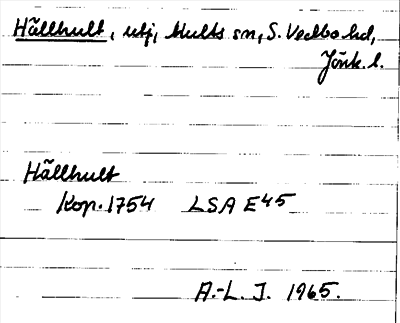 Hällhult, utj, Hults sn, S. Vedbo hd,
Jönk. l.
Hällhult
Kop. 1754 LSA E45
A.-L. J. 1965.